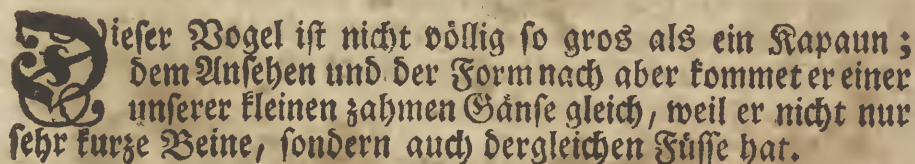 Dieſer Vogel iſt nicht völlig ſo gros als ein Kapaun;
dem Anſehen und der Form nach aber kommet er einer
unſerer kleinen zahmen Gänſe gleich, weil er nicht nur
ſehr kurze Beine, ſondern auch dergleichen Füſſe hat.